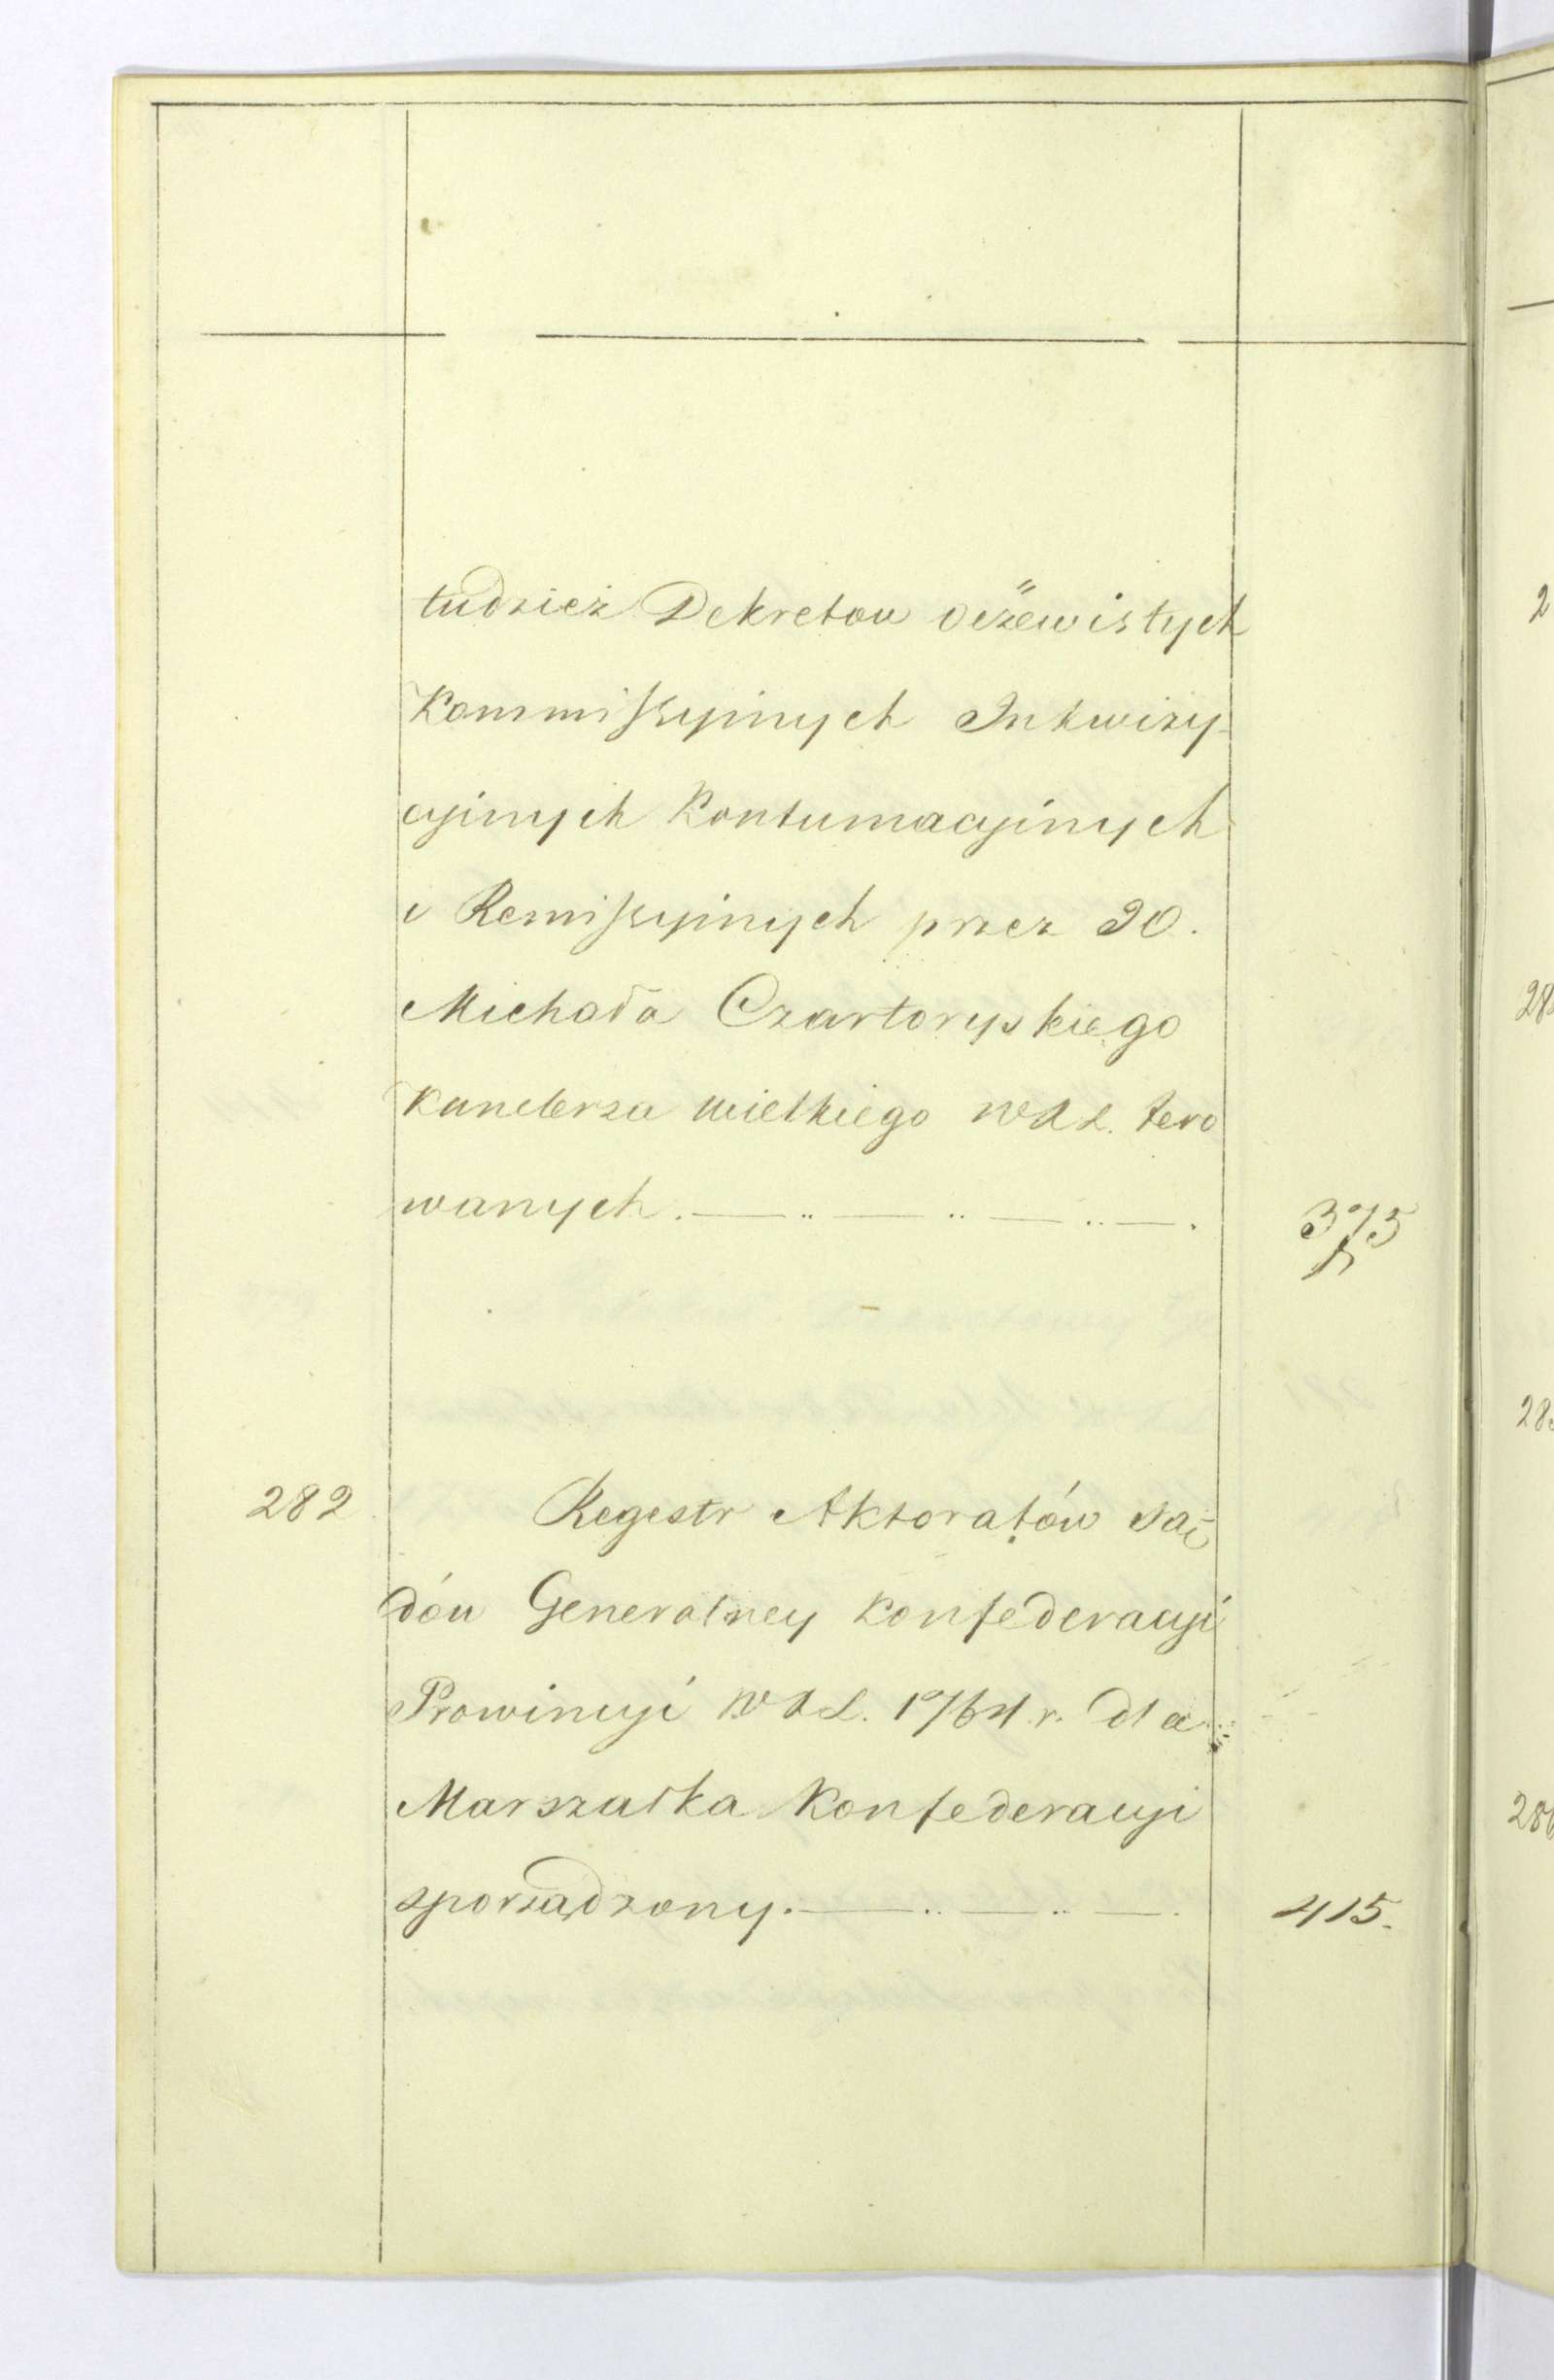 tudzież Dekretow oczewistych
Kommissyinych Inkwizy-
cyinych Kontumacyinych
i Remissyinych przez JO.
Michała Czartoryskiego
Kanclerza wielkiego WXL. fero
wanych. 375
282 Regestr Aktoratów Są
dów Generalney Konfederacyi
Prowincyi WXL. 1764 r. dla
Marszałka Konfederacyi
sporządzony. 415.